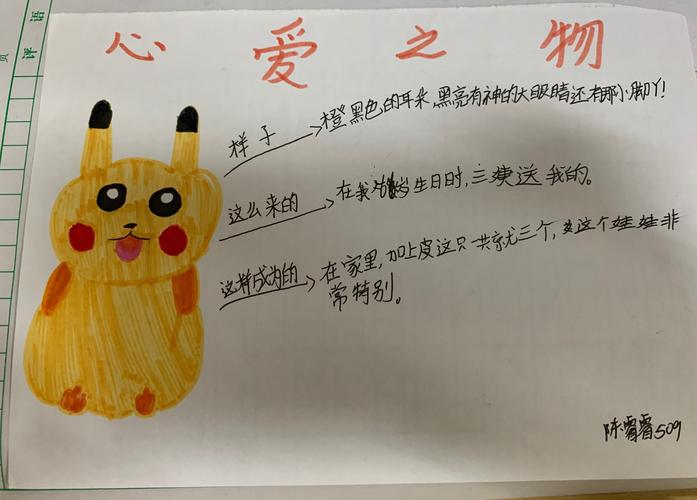 评语
页
心爱之物
样子
橙黑色的耳朵,黑亮有神的大眼睛还有那小脚丫!
这么来的
在我生日时,三姨送我的。
这样成为的
在家里,加上皮这只一共就三个,这个娃娃非
常特别。
陈睿509